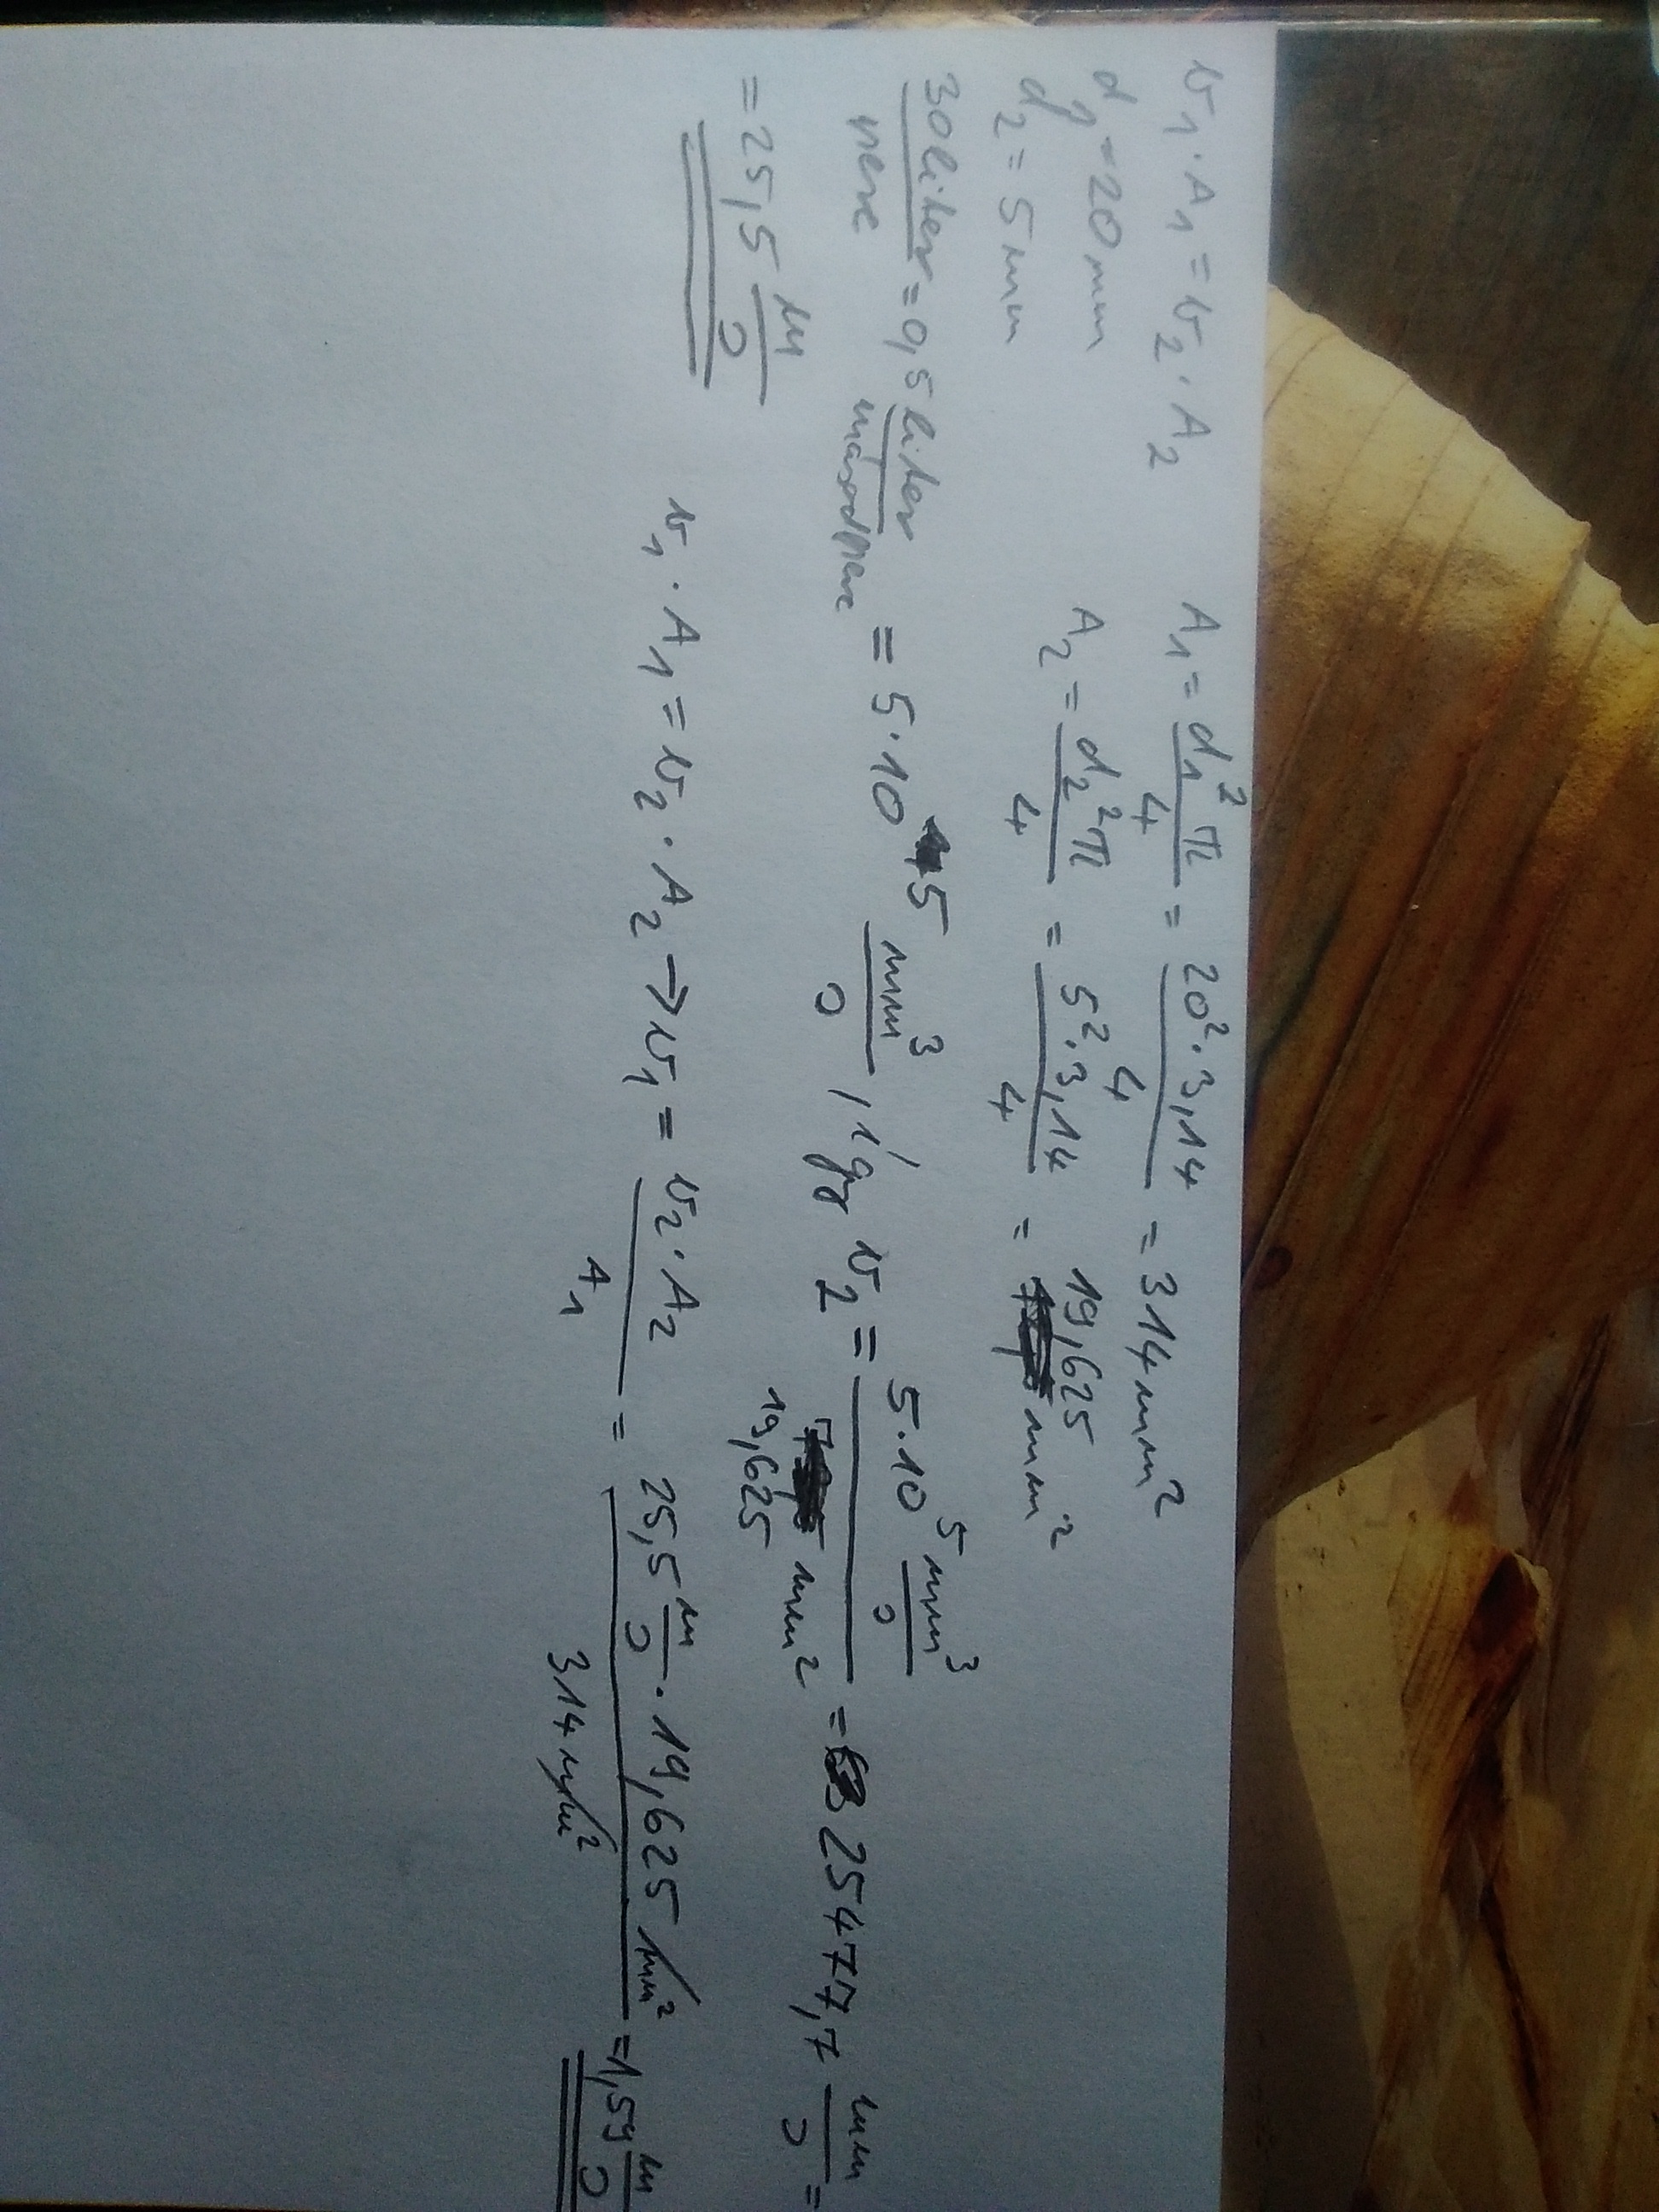 v₁·A₁ = v₂·A₂ A₁ = d₁²π/4 = 20²·3,14/4 = 314 mm²
d₁ = 20 mm
d₂ = 5 mm A₂ = d₂²π/4 = 5²·3,14/4 = 19,625 mm²
30 liter/perc = 0,5 liter/másodperc = 5·10⁵ mm³/s, így v₂ = 5·10⁵ mm³/s / 19,625 mm² = 25477,7 mm/s =
= 25,5 m/s
v₁·A₁ = v₂·A₂ → v₁ = v₂·A₂/A₁ = 25,5 m/s · 19,625 mm² / 314 mm² = 1,59 m/s